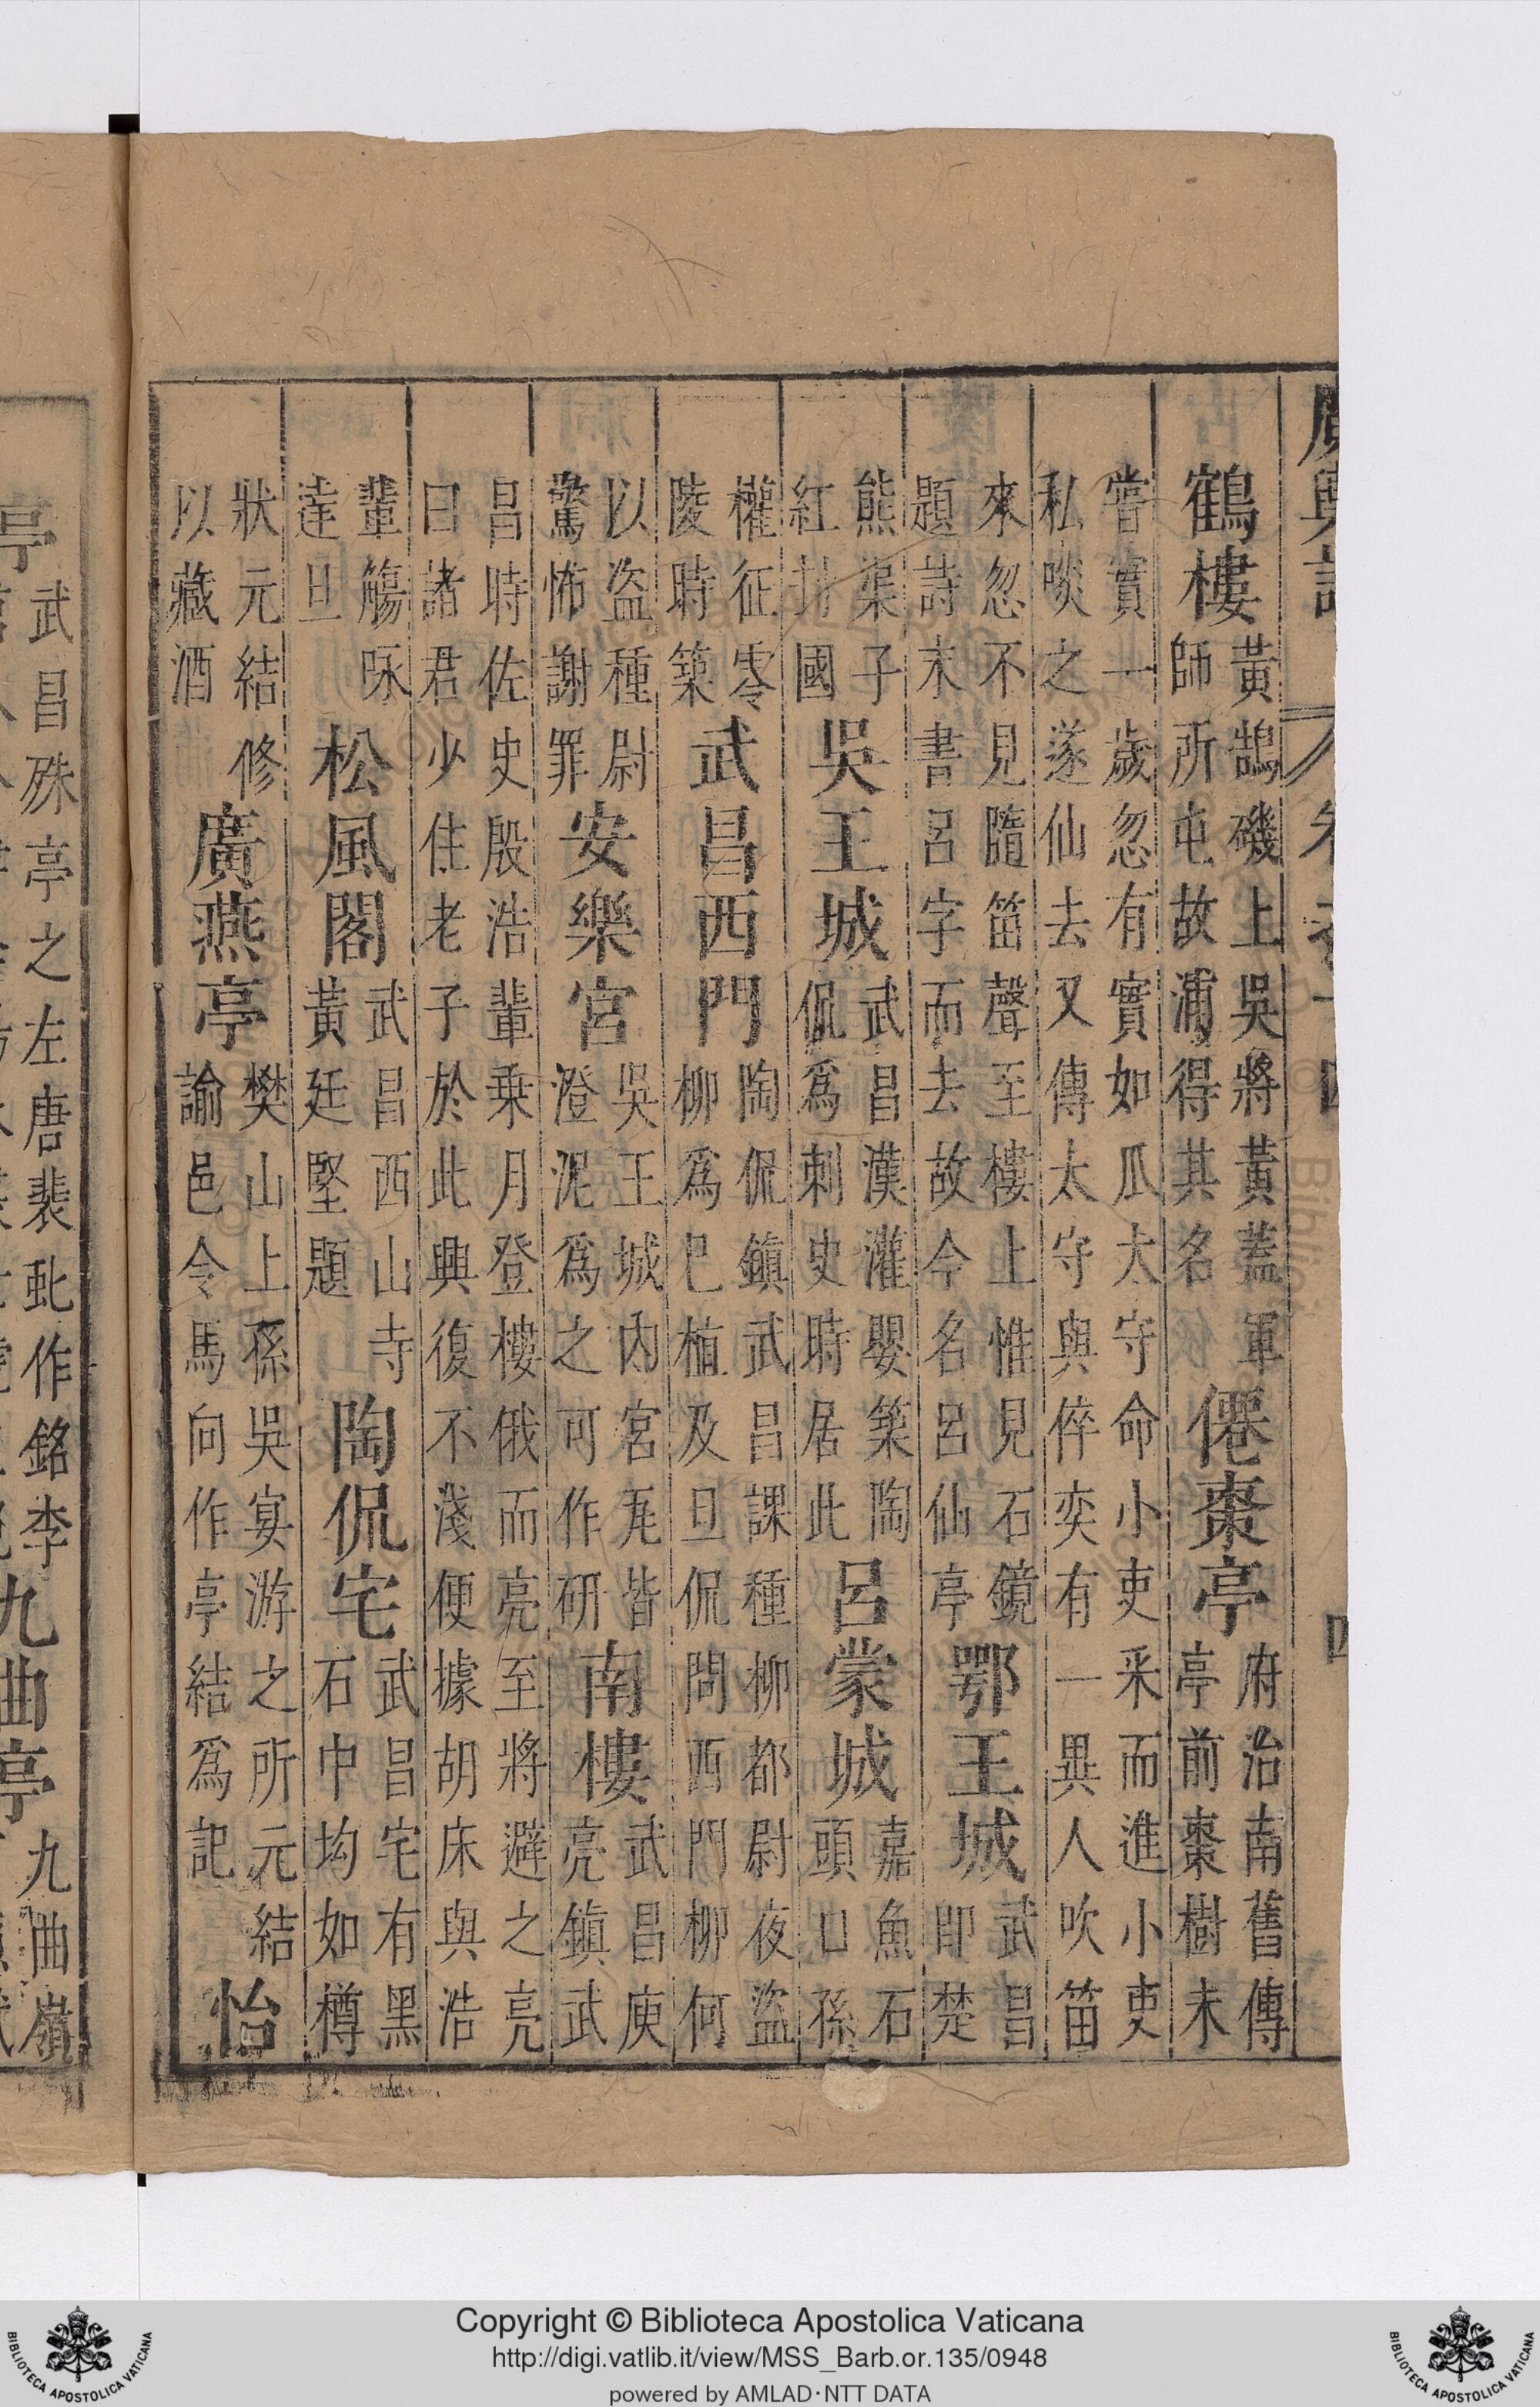 廣輿記
鶴樓
黃鵠磯上吳將黃蓋軍
師所屯故浦得其名
僊棗亭
府治南舊傳
亭前棗樹未
嘗實一歲忽有實如瓜太守命小吏采而進小吏
私啖之遂仙去又傳太守與倅奕有一異人吹笛
來忽不見隨笛聲至樓上惟見石鏡
題詩末書呂字而去故今名呂仙亭
鄂王城
武昌
即楚
熊渠子
紅封國
吳王城
武昌漢灌嬰築陶
侃爲刺史時居此
呂蒙城
嘉魚石
頭口孫
權征零
陵時築
武昌西門
陶侃鎮武昌課種柳都尉夜盜
柳爲巳植及旦侃問西門柳何
以盜種尉
驚怖謝罪
安樂宮
吳王城內宮瓦皆
澄泥爲之可作研
南樓
武昌庾
亮鎮武
昌時佐史殷浩輩乗月登樓俄而亮至將避之亮
曰諸君少住老子於此興復不淺便據胡床與浩
輩觴咏
達旦
松風閣
武昌西山寺
黃廷堅題
陶侃宅
武昌宅有黑
石中均如樽
狀元結修
以藏酒
廣燕亭
樊山上孫吳宴游之所元結
諭邑令馬向作亭結爲記
怡
亭
武昌殊亭之左唐裴虬作銘李
九曲亭
九曲嶺
BIBLIOTECA APOSTOLICA VATICANA
Copyright © Biblioteca Apostolica Vaticana
http://digi.vatlib.it/view/MSS_Barb.or.135/0948
powered by AMLAD·NTT DATA
BIBLIOTECA APOSTOLICA VATICANA